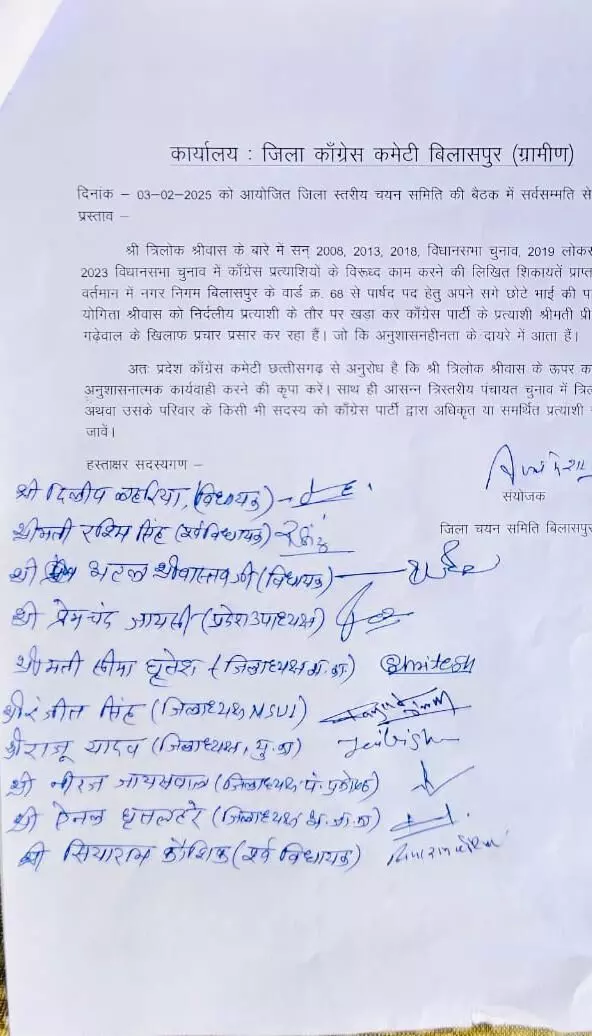 कार्यालय : जिला काँग्रेस कमेटी बिलासपुर (ग्रामीण)
दिनांक – 03-02-2025 को आयोजित जिला स्तरीय चयन समिति की बैठक में सर्वसम्मति से
प्रस्ताव –
श्री त्रिलोक श्रीवास के बारे में सन् 2008, 2013, 2018, विधानसभा चुनाव, 2019 लोकस
2023 विधानसभा चुनाव में काँग्रेस प्रत्याशियों के विरूध्द काम करने की लिखित शिकायतें प्राप्त
वर्तमान में नगर निगम बिलासपुर के वार्ड क्र. 68 से पार्षद पद हेतु अपने सगे छोटे भाई की प
योगिता श्रीवास को निर्दलीय प्रत्याशी के तौर पर खड़ा कर काँग्रेस पार्टी के प्रत्याशी श्रीमती प्री
गढ़ेवाल के खिलाफ प्रचार प्रसार कर रहा हैं। जो कि अनुशासनहीनता के दायरे में आता हैं।
अतः प्रदेश काँग्रेस कमेटी छत्तीसगढ़ से अनुरोध है कि श्री त्रिलोक श्रीवास के ऊपर क
अनुशासनात्मक कार्यवाही करने की कृपा करें। साथ ही आसन्न त्रिस्तरीय पंचायत चुनाव में त्रि
अथवा उसके परिवार के किसी भी सदस्य को काँग्रेस पार्टी द्वारा अधिकृत या समर्थित प्रत्याशी
जावें।
हस्ताक्षर सदस्यगण –
संयोजक
जिला चयन समिति बिलासपुर
श्री दिलीप लहरिया, (विधायक)
श्रीमती रश्मि सिंह (पूर्व विधायक)
श्री अटल श्रीवास्तव जी (विधायक)
श्री प्रेमचंद जायसी (प्रदेश उपाध्यक्ष)
श्रीमती सीमा घृतेश (जिलाध्यक्ष म.का.)
श्री रंजीत सिंह (जिलाध्यक्ष NSUI)
श्री राजू यादव (जिलाध्यक्ष, यु.का)
श्री नीरज जायसवाल (जिलाध्यक्ष पं. प्रकोष्ठ)
श्री घृतलहरे (जिलाध्यक्ष
श्री सियाराम कौशिक (पूर्व विधायक)